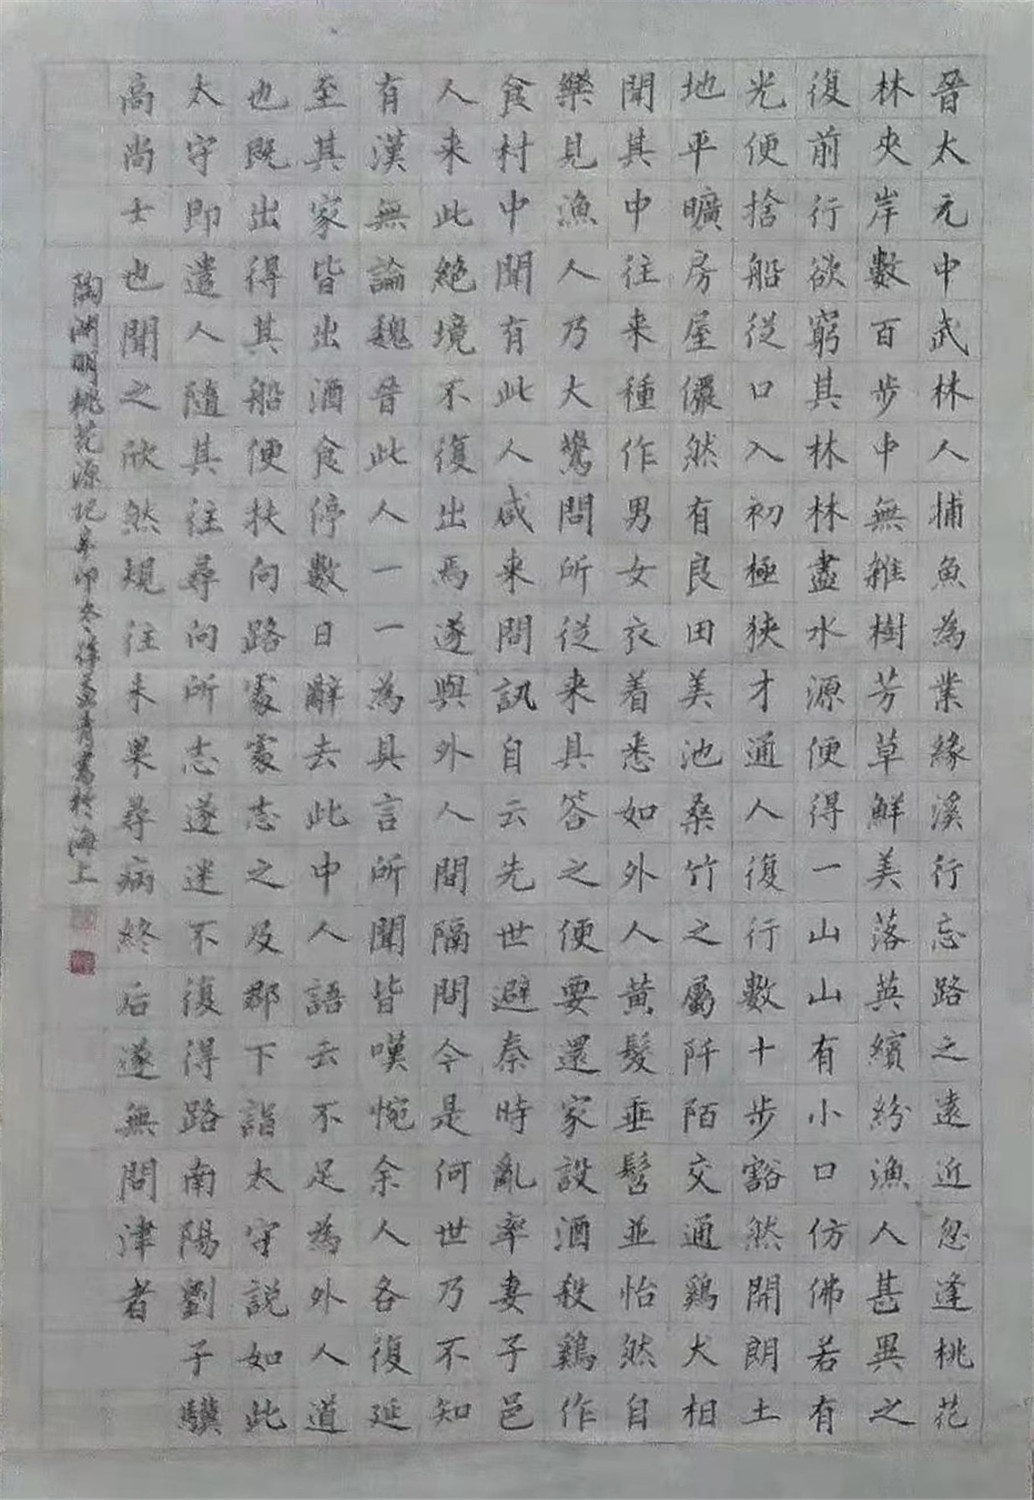 晉太元中武林人捕魚為業緣溪行忘路之遠近忽逢桃花
林夾岸數百步中無雜樹芳草鮮美落英繽紛漁人甚異之
復前行欲窮其林林盡水源便得一山山有小口仿佛若有
光便捨船從口入初極狹才通人復行數十步豁然開朗土
地平曠房屋儼然有良田美池桑竹之屬阡陌交通鷄犬相
聞其中往来種作男女衣着悉如外人黃髮垂髫並怡然自
樂見漁人乃大驚問所從来具答之便要還家設酒殺鷄作
食村中聞有此人咸来問訊自云先世避秦時亂率妻子邑
人来此絕境不復出焉遂與外人間隔問今是何世乃不知
有漢無論魏晉此人一一為具言所聞皆嘆惋余人各復延
至其家皆出酒食停數日辭去此中人語云不足為外人道
也既出得其船便扶向路處處志之及郡下詣太守説如此
太守即遣人隨其往尋向所志遂迷不復得路南陽劉子驥
高尚士也聞之欣然規往未果尋病終后遂無問津者
陶淵明桃花源記辛卯冬書於海上